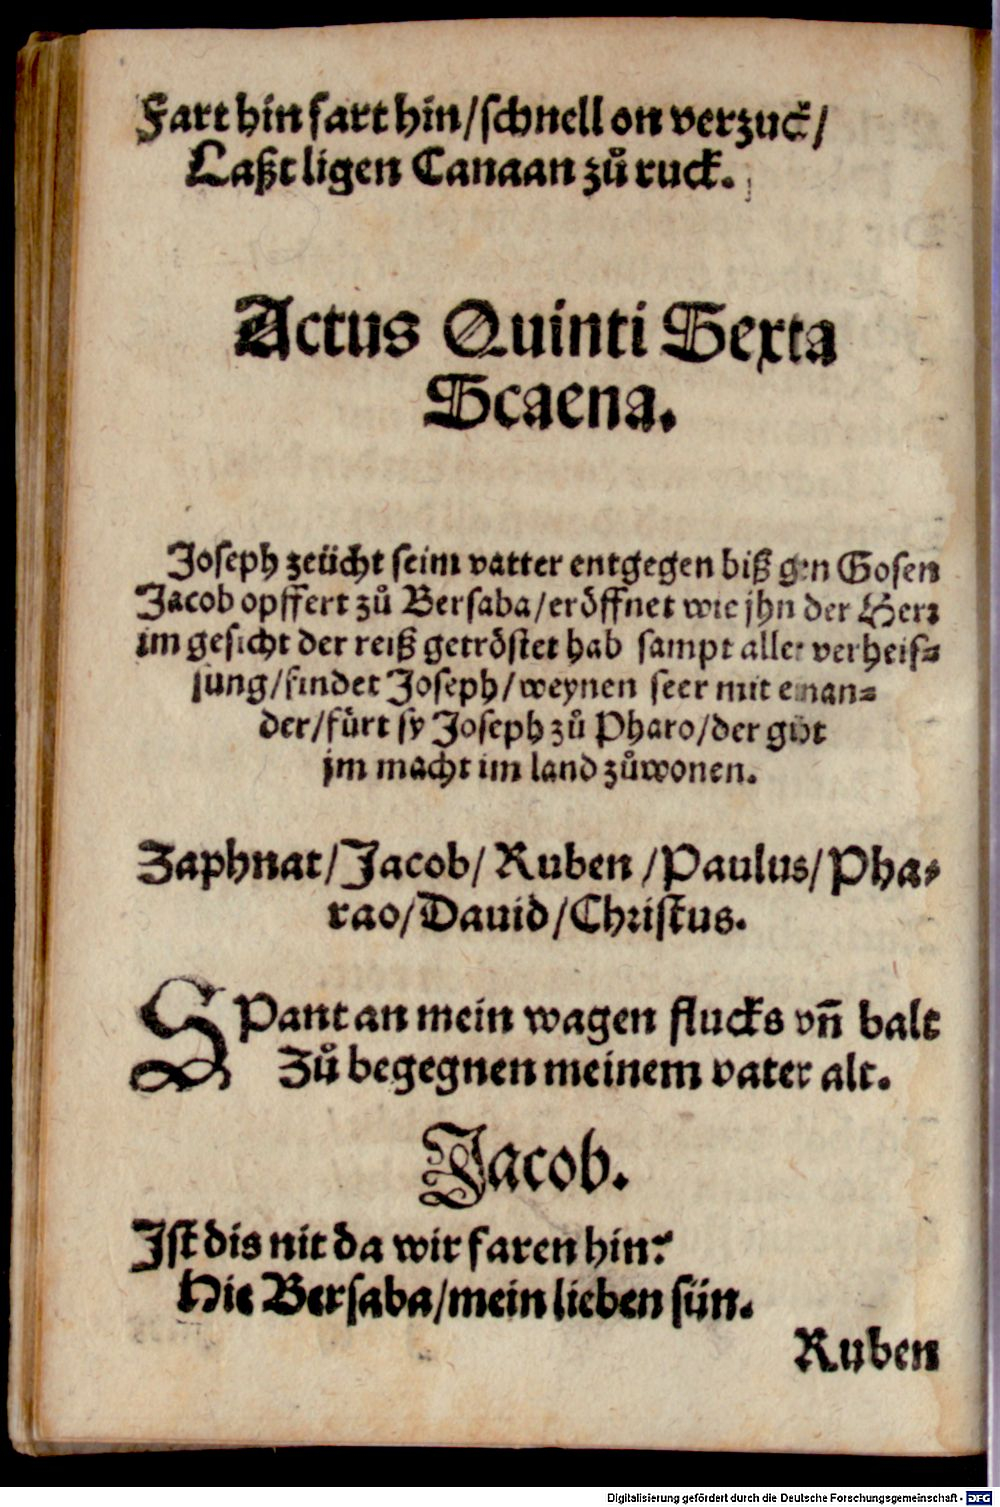 Fart hin fart hin/schnell on verzuck/
Laßt ligen Canaan zů ruck.
Actus Quinti Sexta
Scaena.
Joseph zeücht seim vatter entgegen biß gen Gosen
Jacob opffert zů Bersaba/eröffnet wie jhn der Herr
im gesicht der reiß getröstet hab sampt aller verheis⸗
sung/findet Joseph/weynen seer mit einan⸗
der/fürt sy Joseph zů Pharo/der gibt
jm macht im land zůwonen.
Zaphnat/Jacob/Ruben/Paulus/Pha⸗
rao/Dauid/Christus.
SPant an mein wagen flucks vñ balt
Zů begegnen meinem vater alt.
Jacob.
Ist dis nit da wir faren hin?
Hie Bersaba/mein lieben sün.
Ruben
Digitalisierung gefördert durch die Deutsche Forschungsgemeinschaft - DFG